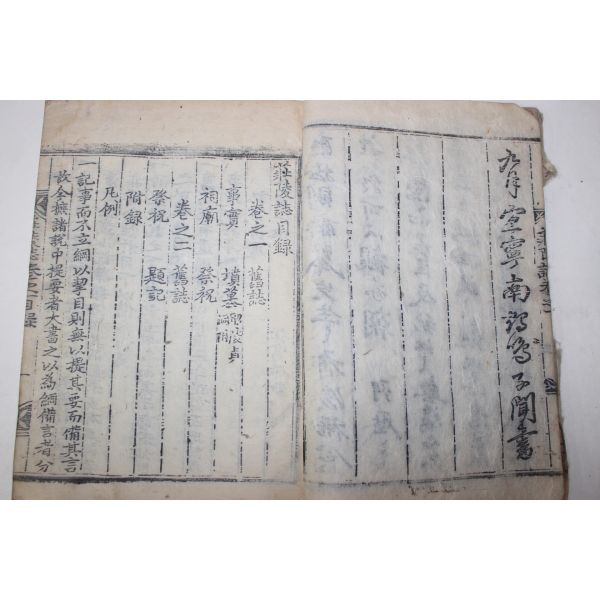 九月宜寧南鶴鳴子聞書
莊陵誌目錄
卷之一 舊誌
事實 墳墓
祠廟 祭祝
卷之二 舊誌
祭祝 題記
附錄
凡例
一記事而不立綱以挈目則無以提其要而備其言
故今摭諸說中提要者大書之以爲綱備言者分
目錄